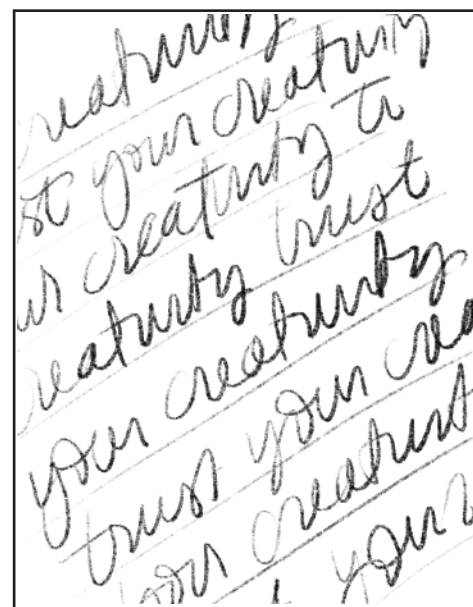 reativity
st your creativity
ur creativity tr
reativity trust
your creativity
trust your crea
our creativit
your